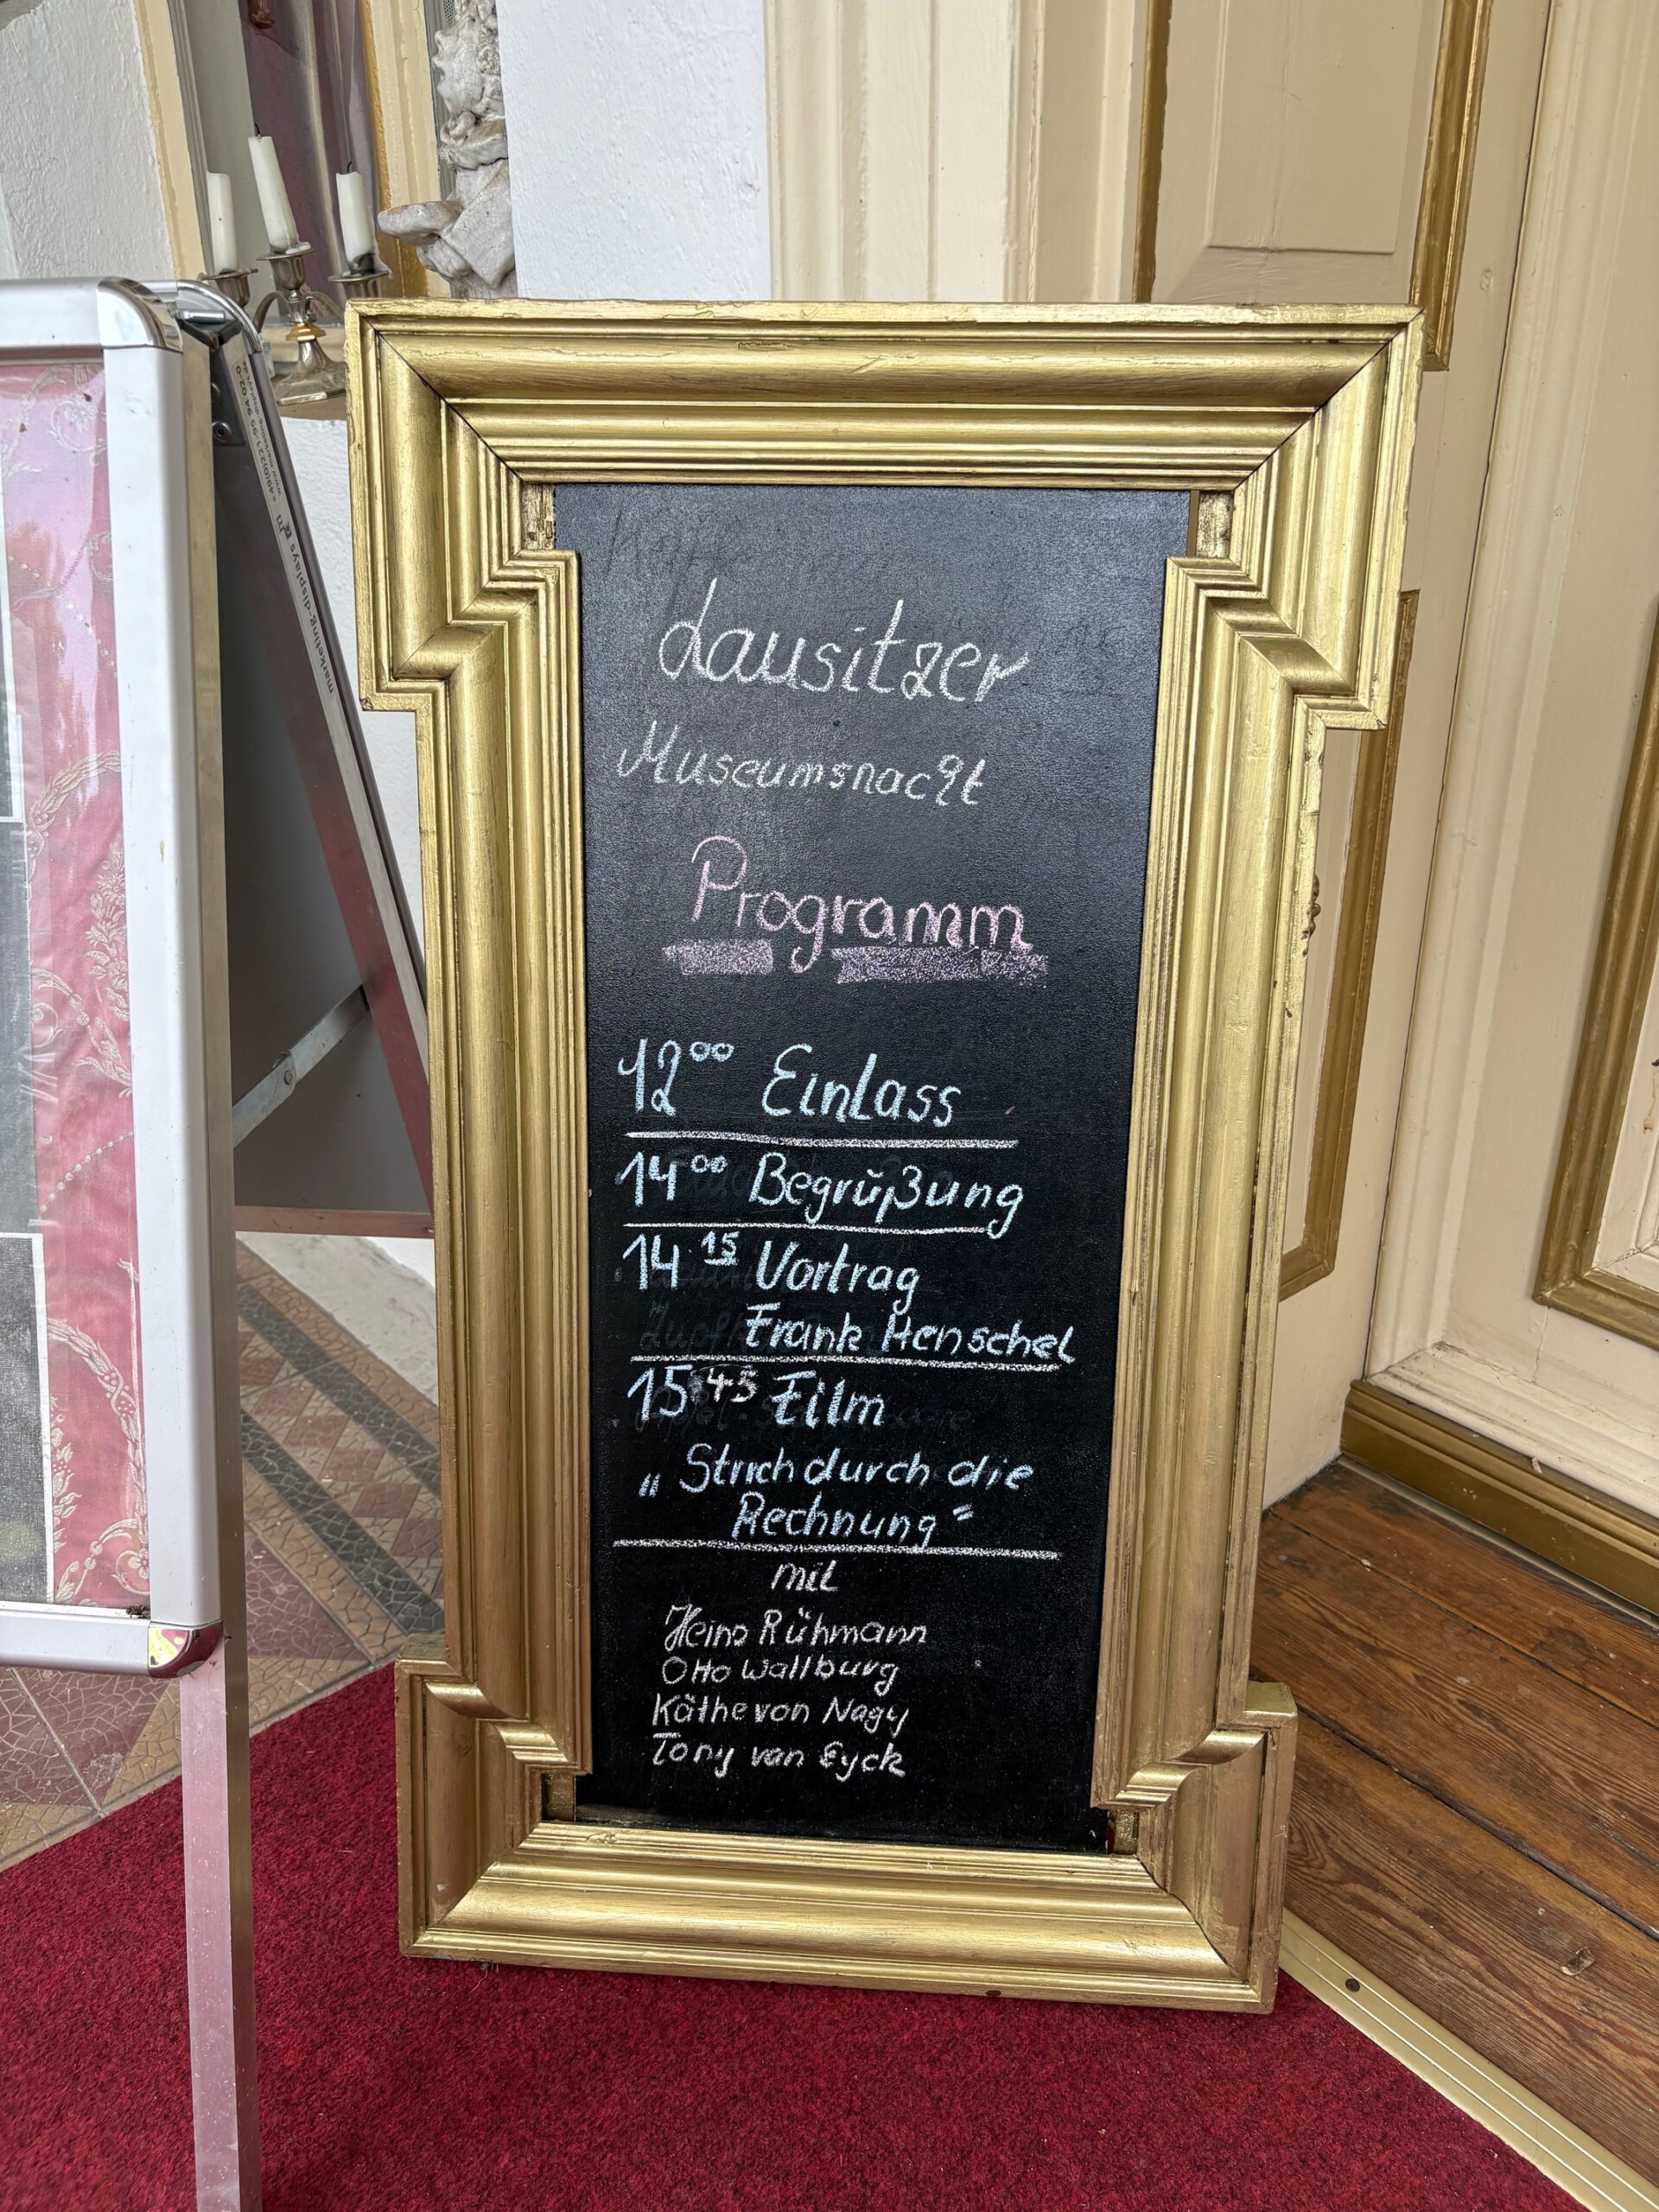 Lausitzer
Museumsnacht
Programm
12⁰⁰ Einlass
14⁰⁰ Begrüßung
14¹⁵ Vortrag
Frank Henschel
15⁴⁵ Film
„Strich durch die
Rechnung“
mit
Heinz Rühmann
Otto Wallburg
Käthe von Nagy
Tony van Eyck
marketing-displays